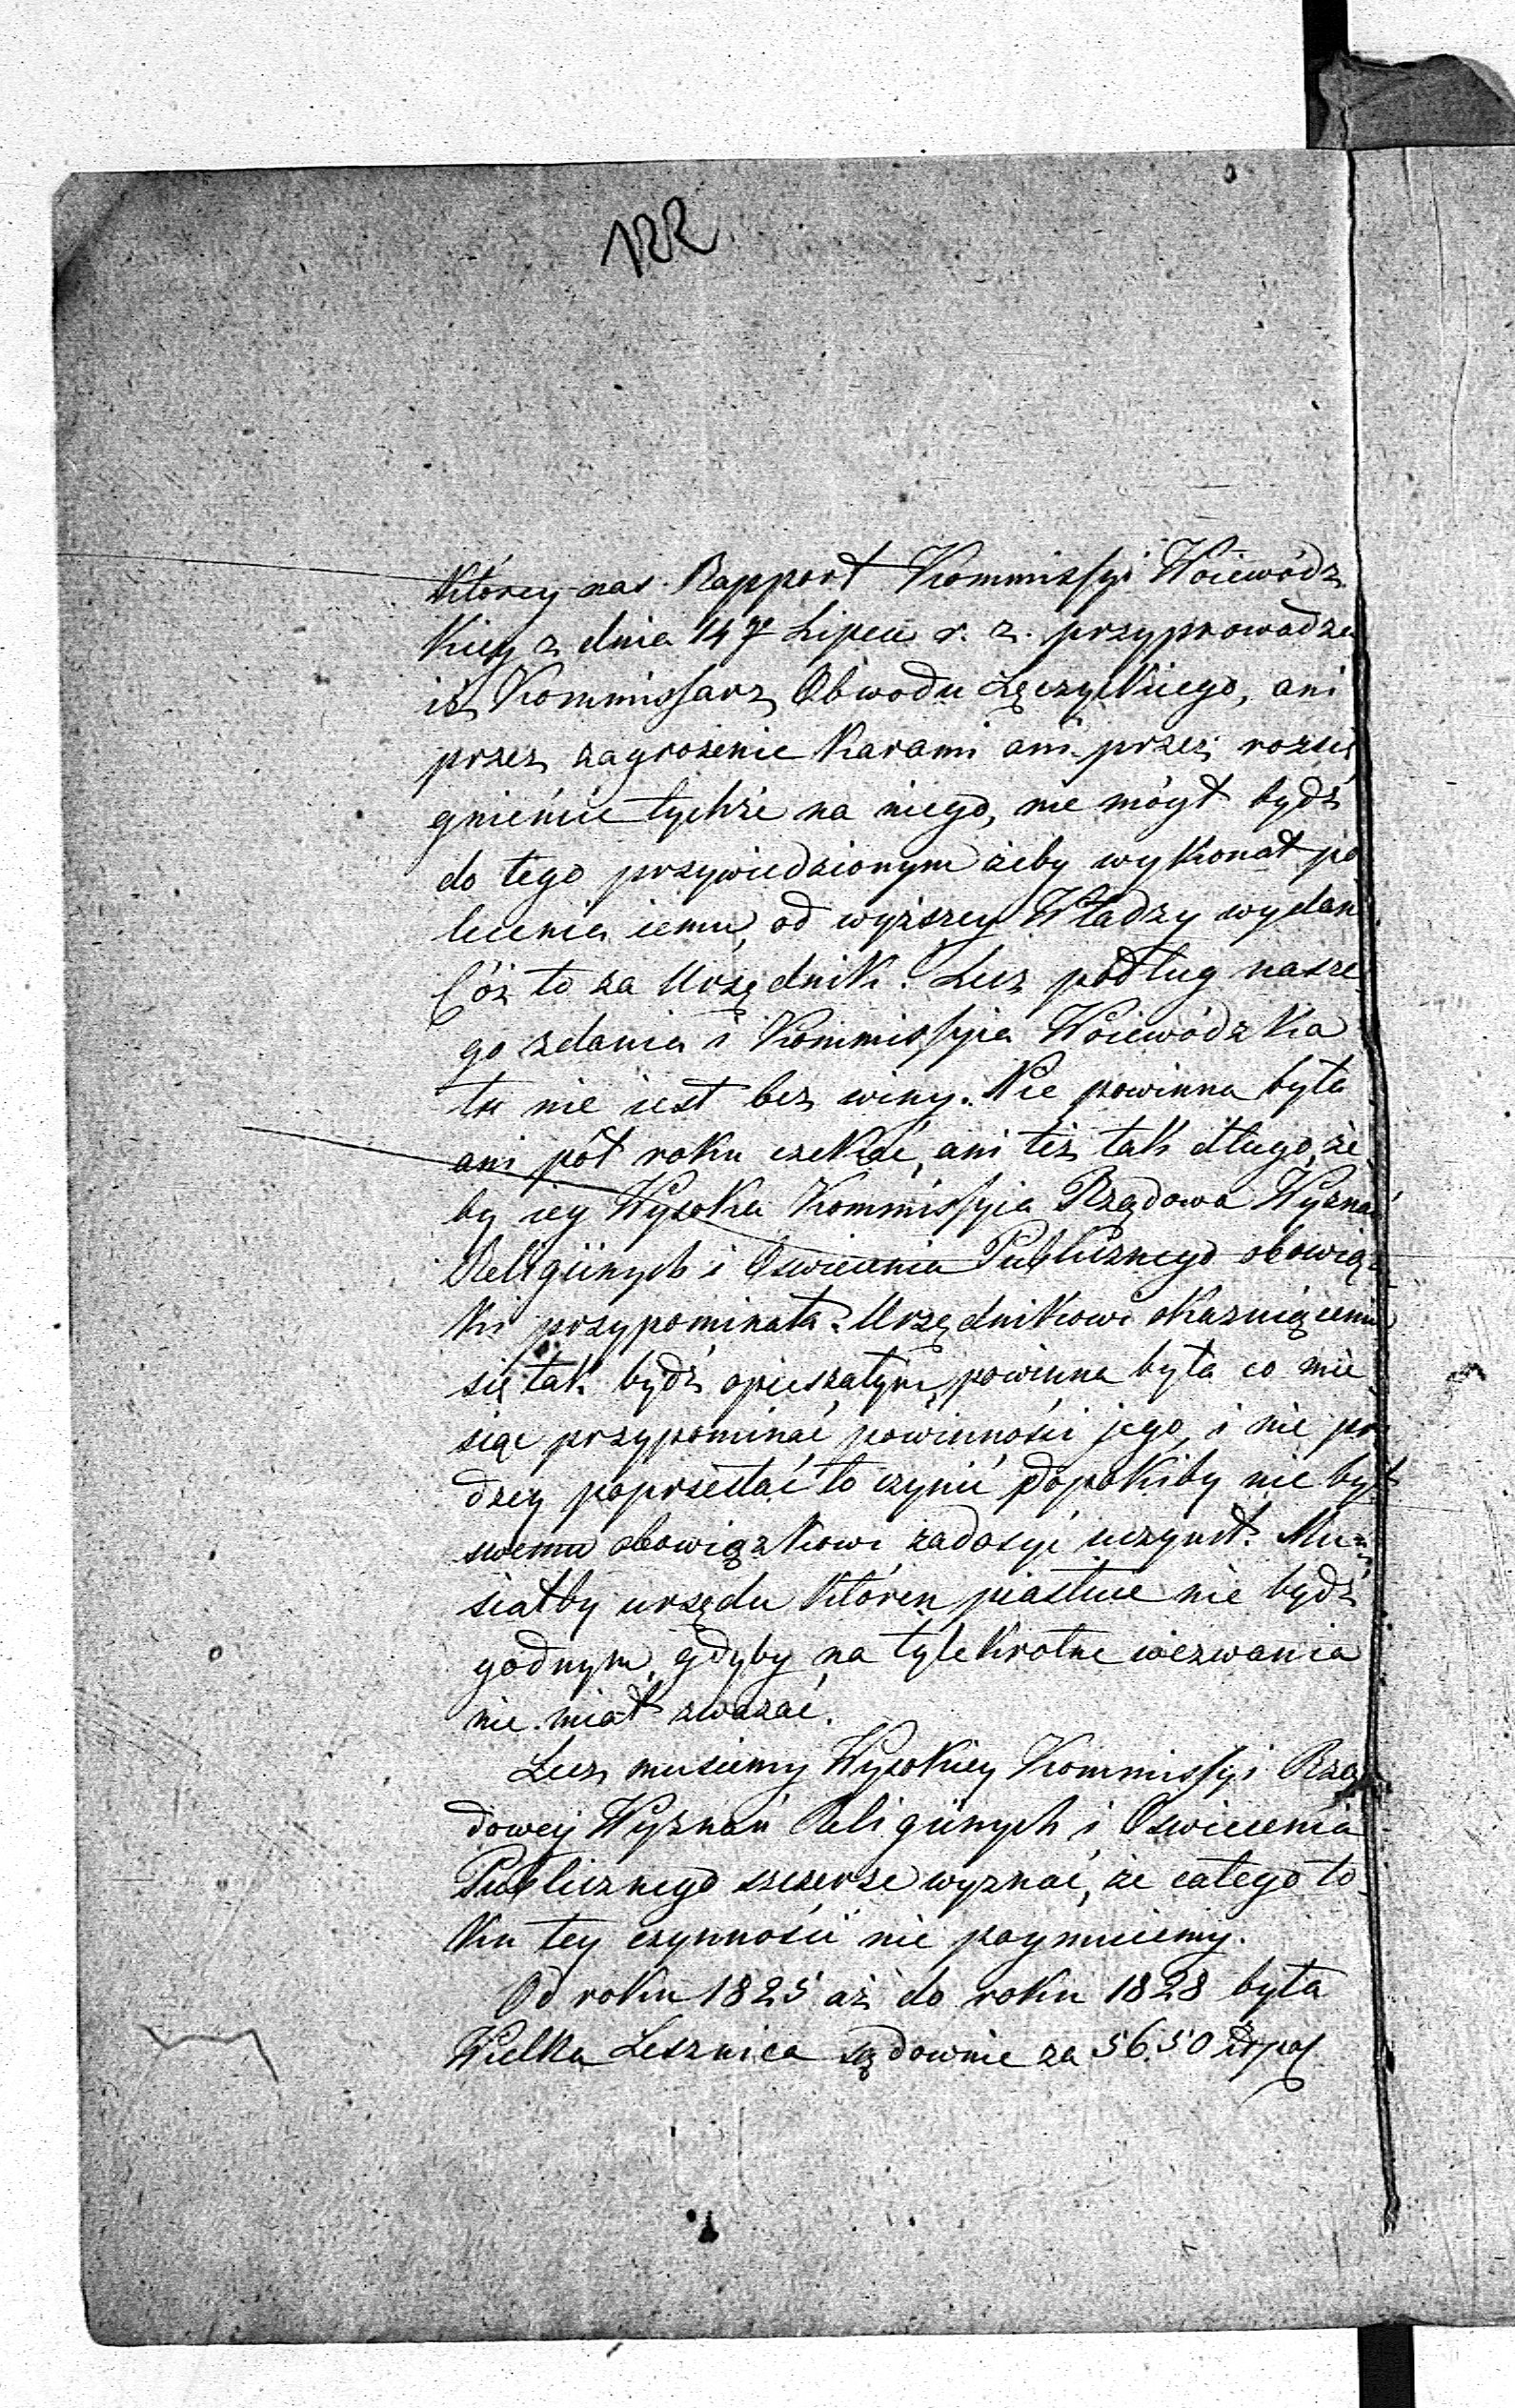 122
którey nas Rapport Kommissyi Woiewódz
kiey z dnia 14go Lipca r. z. przyprowadza
iż Kommissarz Obwodu Łęczyckiego, ani
przez zagrożenie karami ani przez rozcią
gnienie tychże na niego, nie mógł bydź
do tego przywiedzionym żeby wykonał po
lecenia iemu, od wyższey Władzy wydane
Cóż to za Urzędnik. Lecz podług nasze
go zdania i Kommissyia Woiewódzka
tu nie iest bez winy. Nie powinna była
ani pół roku czekać, ani też tak długo, że
by iey Wysoka Kommissyia Rządowa Wyznań
Religiinych i Oswiecenia Publicznego obowiąz
ki przypominała. Urzędnikowi okazuiącemu
się tak bydź opieszałym, powinna była co mie
siąc przypominać powinności jego, i nie prę
dzey poprzestać to czynić dopokiby nie był
swemu obowiązkowi zadosyć uczynił. Mu=
siałby urzędu któren piastuie nie bydź
godnym, gdyby na tylekrotne wezwania
nie miał zważać.
Lecz musiemy Wysokiey Kommissyi Rzą
dowey Wyznań Religiinych i Oswiecenia
Publicznego szczerze wyznać, że całego to
ku tey czynności nie poymuiemy.
Od roku 1825 aż do roku 1828 była
Wielka Lesznica sądownie za 5650 złpol